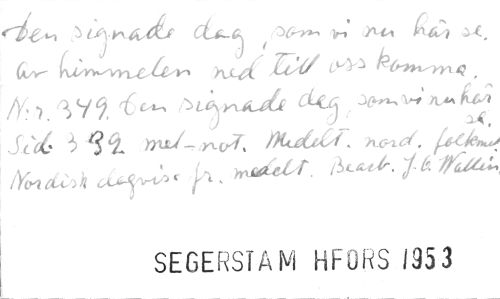 Den signade dag, som vi nu här se,
av himmelen ned till oss komma,
N:r. 349. Den signade dag, som vi nu här
se.
Sid. 339. mel-not. Medelt. nord. folkmel
Nordisk dagvisa fr. medelt. Bearb. J. O. Wallin.
SEGERSTAM HFORS 1953